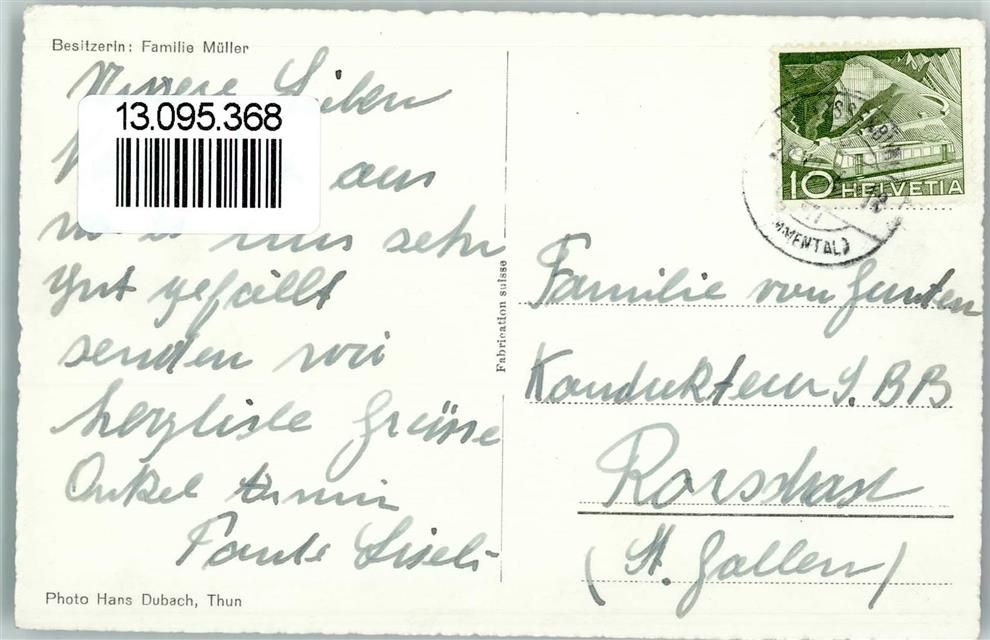 Besitzerin: Familie Müller
Lieben
13.095.368
aus
uns sehr
gut gefällt
senden wir
herzliste Grüsse
Onkel Armin
Tante Liseli
Photo Hans Dubach, Thun
Fabrication suisse
10 HELVETIA
MMENTAL)
Familie von Gunten
Kondukteur S.BB
Rorschast
(St. Gallen)